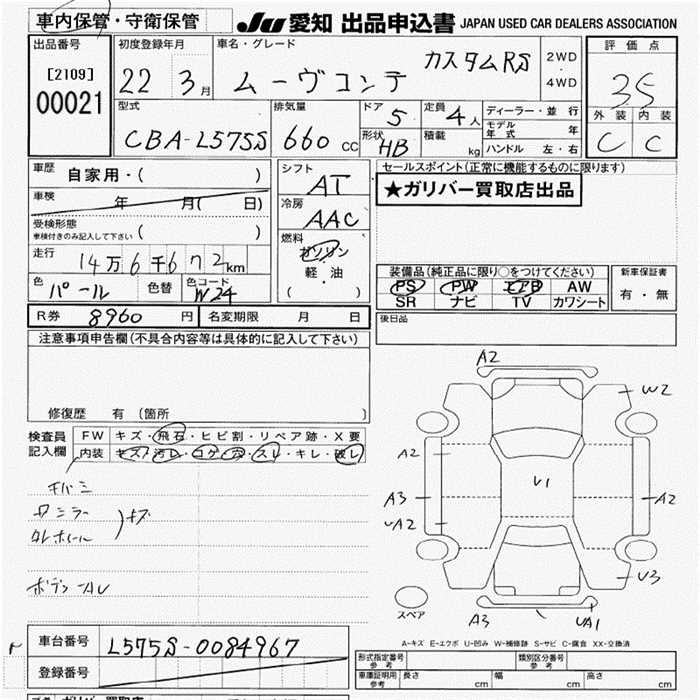 車内保管・守衛保管
JU 愛知 出品申込書 JAPAN USED CAR DEALERS ASSOCIATION
出品番号 [2109] 00021
初度登録年月 22 3月
車名・グレード ムーヴコンテ カスタムRS 2WD・4WD
評価点 3.5
外装 C 内装 C
型式 CBA-L575S
排気量 660 CC
ドア 5 形状 HB
定員 4人 積載 kg
ディーラー・並行
モデル年式 年
ハンドル 左・右
車歴 自家用・( )
車検 年 月( 日)
受検形態 車検付きのみ記入して下さい ( )
走行 14万6千672km
色 パール 色替 色コード W24
シフト AT
冷房 AAC
燃料 ガソリン 軽・油 ( )
セールスポイント(正常に機能するものに限ります)
★ガリバー買取店出品
装備品(純正品に限り○をつけてください)
PS PW エアB AW
SR ナビ TV カワシート
新車保証書 有・無
R券 8960円 名変期限 月 日
後日品
注意事項申告欄(不具合内容等は具体的に記入して下さい)
修復歴 有 (箇所
検査員記入欄 FW キズ・飛石・ヒビ割・リペア跡・X要
内装 キズ・汚レ・コゲ・穴・スレ・キレ・破レ
A2
W2
A2
U1
A3
A2
UA2
U3
スペア
A3
UA1
A-キズ E-エクボ U-凹み W-補修跡 S-サビ C-腐食 XX-交換済
車台番号 L575S-0084967
登録番号
形式指定番号 参考 類別区分番号 参考
車庫証明用 参考 長さ cm 幅 cm 高さ cm
ガリバー買取店